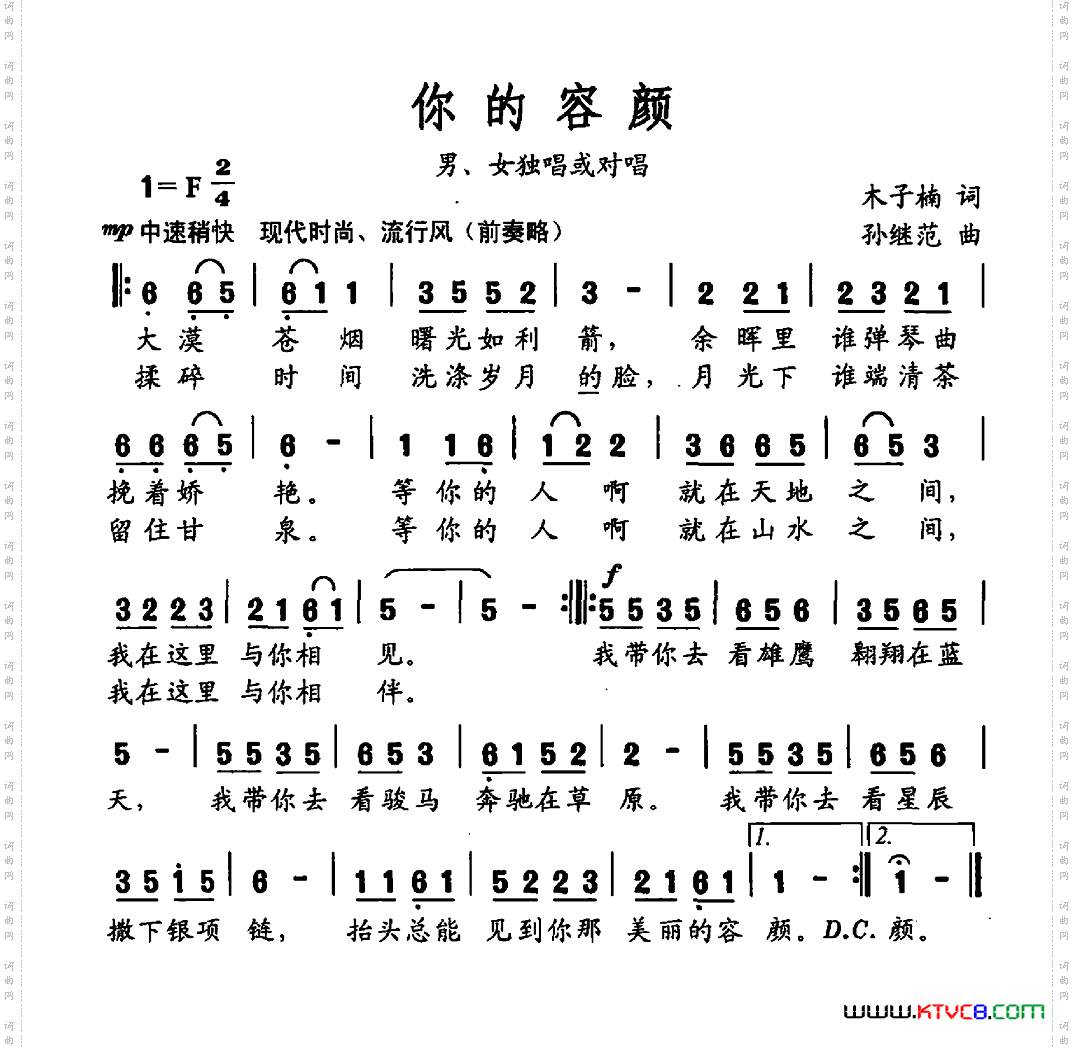 你的容颜
男、女独唱或对唱
1=F 2/4
木子楠 词
mp 中速稍快 现代时尚、流行风（前奏略）
孙继范 曲
‖: 6 6 5 | 6 1 1 | 3 5 5 2 | 3 - | 2 2 1 | 2 3 2 1 |
大漠 苍烟 曙光如利 箭， 余晖里 谁弹琴曲
揉碎 时间 洗涤岁月 的脸， 月光下 谁端清茶
6 6 6 5 | 6 - | 1 1 6 | 1 2 2 | 3 6 6 5 | 6 5 3 |
挽着娇 艳。 等你的 人啊 就在天地 之间，
留住甘 泉。 等你的 人啊 就在山水 之间，
f
3 2 2 3 | 2 1 6 1 | 5 - | 5 - :‖: 5 5 3 5 | 6 5 6 | 3 5 6 5 |
我在这里 与你相 见。 我带你去 看雄鹰 翱翔在蓝
我在这里 与你相 伴。
5 - | 5 5 3 5 | 6 5 3 | 6 1 5 2 | 2 - | 5 5 3 5 | 6 5 6 |
天， 我带你去 看骏马 奔驰在草 原。 我带你去 看星辰
1. 2.
3 5 i 5 | 6 - | 1 1 6 1 | 5 2 2 3 | 2 1 6 1 | 1 - :‖ 1 - ‖
撒下银项 链， 抬头总能 见到你那 美丽的容 颜。D.C. 颜。
WWW.KTVC8.COM